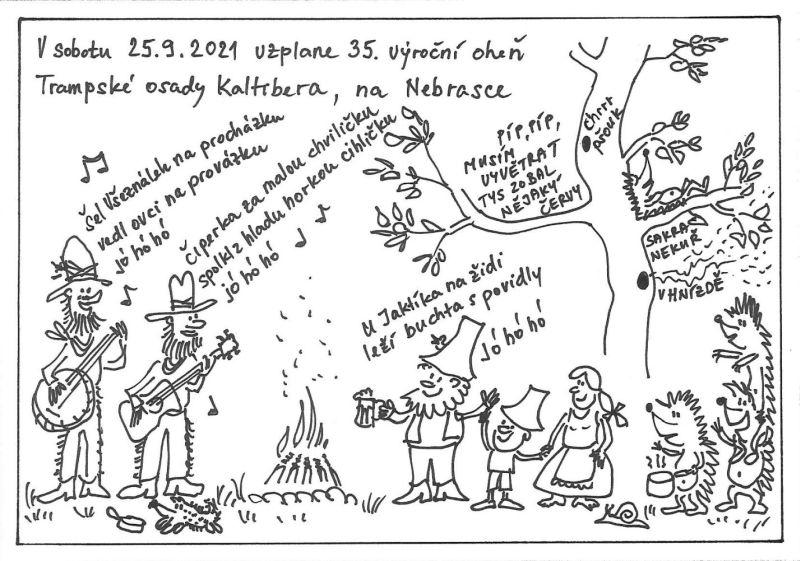 V sobotu 25.9.2021 vzplane 35. výroční oheň
Trampské osady Kaltrbera, na Nebrasce
Šel Všeználek na procházku
vedl ovci na provázku
jó hó hó
Čiperka za malou chviličku
spolkl z hladu horkou cihličku
jó hó hó
U Jaktíka na židi
leží buchta s povidly
jó hó hó
PÍP, PÍP,
MUSÍM
VYVĚTRAT
TYS ZOBAL
NĚJAKÝ
ČERVY
Chrrr
pfouk
SAKRA
NEKUŘ
V HNÍZDĚ